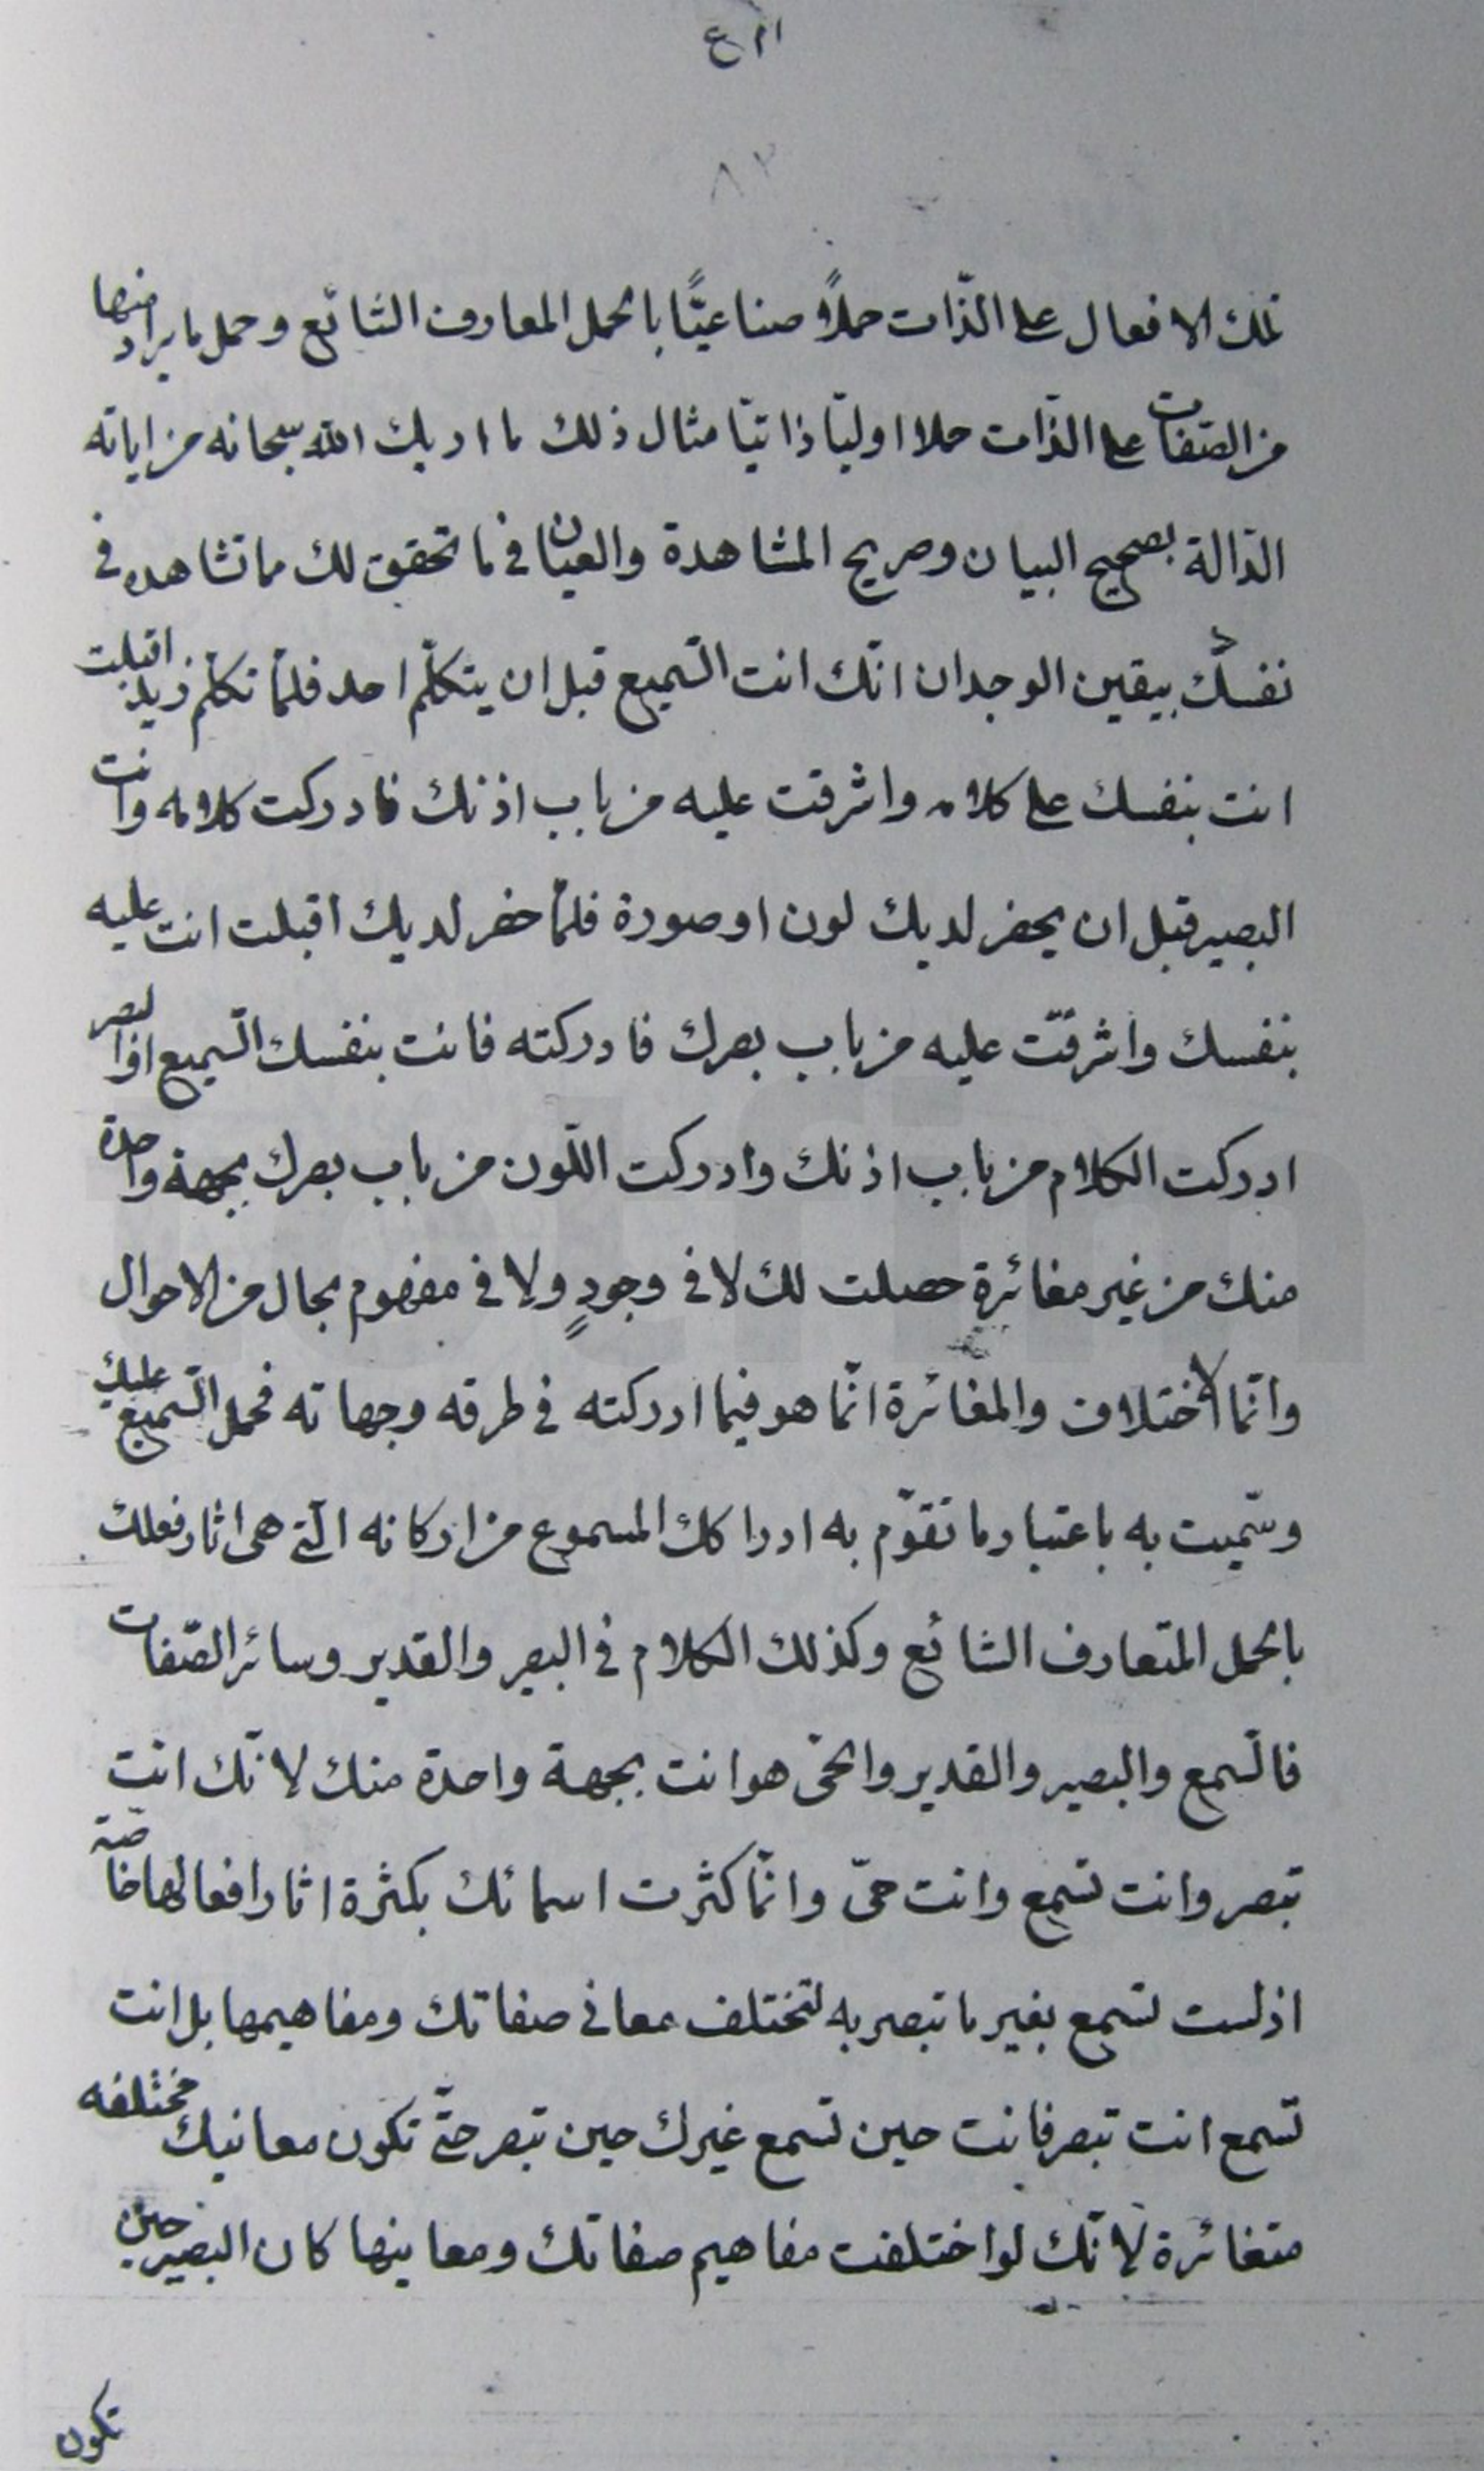 ٨٢
تلك الافعال على الذّات حملاً صناعيًّا بالحمل المعارف الشائع وحمل ما يراد منها
من الصّفات على الذّات حملا اوليّا ذاتيّا مثال ذلك ما اريك الله سبحانه من اياته
الدّالة بصحيح البيان وصريح المشاهدة والعيان في ما تحقق لك ما تشاهده في
نفسك بيقين الوجدان انّك انت السّميع قبل ان يتكلّم احد فلمّا تكلّم زيد اقبلت
انت بنفسك على كلامه واشرقت عليه من باب اذنك فادركت كلامه وانت
البصير قبل ان يحضر لديك لون او صورة فلمّا حضر لديك اقبلت انت عليه
بنفسك واشرقت عليه من باب بصرك فادركته فانت بنفسك السّميع البصر اذا
ادركت الكلام من باب اذنك وادركت اللّون من باب بصرك بجهة واحدة
منك من غير مغائرة حصلت لك لا في وجودٍ ولا في مفهوم بحال من الاحوال
وانّما الاختلاف والمغائرة انّما هو فيما ادركته في طرقه وجهاته فحمل السّميع عليك
وسمّيت به باعتبار ما تقوّم به ادراكك المسموع من اركانه الّتي هي اثار فعلك
بالحمل المتعارف الشائع وكذلك الكلام في البصر والقدير وسائر الصّفات
فالسّمع والبصير والقدير والحيّ هو انت بجهة واحدة منك لانّك انت
تبصر وانت تسمع وانت حيّ وانّما كثرت اسمائك بكثرة اثار افعالها خاصّة
اذ لست تسمع بغير ما تبصر به لتختلف معاني صفاتك ومفاهيمها بل انت
تسمع انت تبصر فانت حين تسمع غيرك حين تبصر حتّى تكون معانيك مختلفه
متغائرة لانّك لو اختلفت مفاهيم صفاتك ومعاينها كان البصير حين
تكون